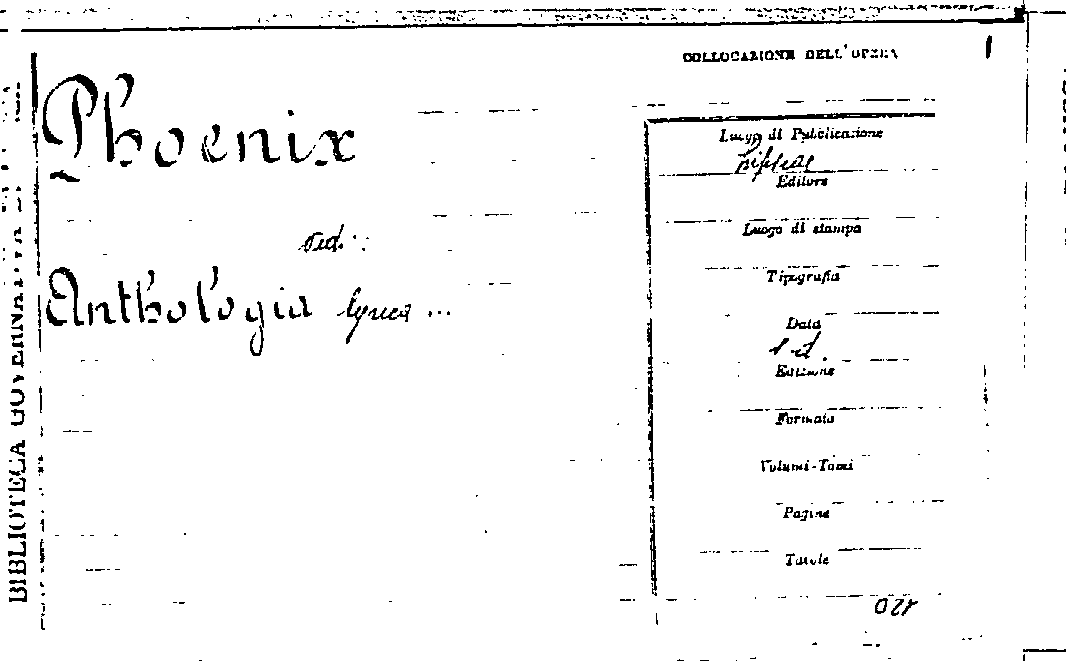 COLLOCAZIONE DELL'OPERA
Phoenix
ved:
Anthologia lyrica ...
Luogo di Pubblicazione
Lipsiae
Editore
Luogo di stampa
Tipografia
Data
s.d.
Edizione
Formato
Volumi-Tomi
Pagine
Tavole
BIBLIOTECA GOVERNATIVA